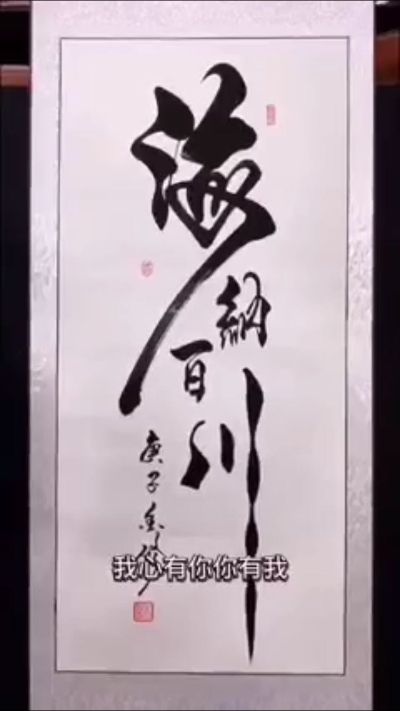 海纳百川
庚子
我心有你你有我